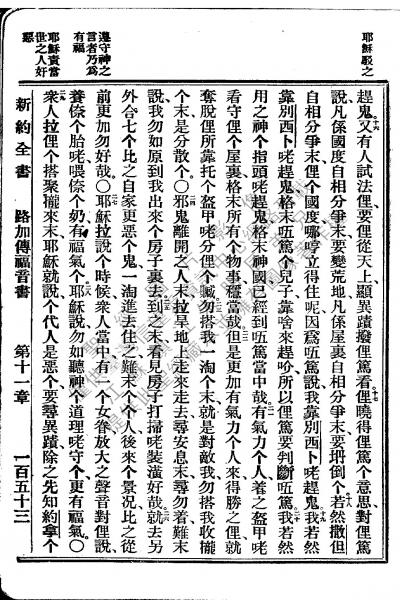 耶穌駁之
趕鬼十六又有人試法俚要俚從天上顯異蹟撥俚篤看十七俚曉得俚篤个意思對俚篤
說凡係國度自相分爭末要變荒地凡係屋裏自相分爭末要坍倒个十八若然撒但
自相分爭末俚个國度哪哼立得住呢因爲㕶篤說我靠別西卜咾趕鬼十九我若然
靠別西卜咾趕鬼格末㕶篤个兒子靠啥來趕吤所以俚篤要判斷㕶篤二十我若然
用之神个指頭咾趕鬼格末神國已經到㕶篤當中哉二一有氣力个人着之盔甲咾
看守俚个屋裏格末所有个物事穩當哉二二但是更加有氣力个人來得勝之俚
奪脫俚所靠托个盔甲咾分俚个贓二三勿搭我一淘个末就是對敵我勿搭我收攏
个末是分散个○二四邪鬼離開之人末拉旱地上走來走去尋安息末尋勿着難末
說我勿如原到我出來个房子裏去二五到之末看見房子打掃咾裝潢好哉二六就去另
外合七个比之自家更惡个鬼一淘進去住之難末个个人後來个景況比之從
前更加勿好哉○二七耶穌拉說个時候衆人當中有一个女眷放大之聲音對俚說
養倷个胎咾喂倷个奶有福氣个二八耶穌說勿如聽神个道理咾守个更有福氣○
遵守神之言者乃爲有福
二九衆人拉俚个搭聚攏來末耶穌就說个代人是惡个要尋異蹟除之先知約拿个
耶穌責當世之人好惡
新約全書　路加傳福音書　第十一章　一百五十三